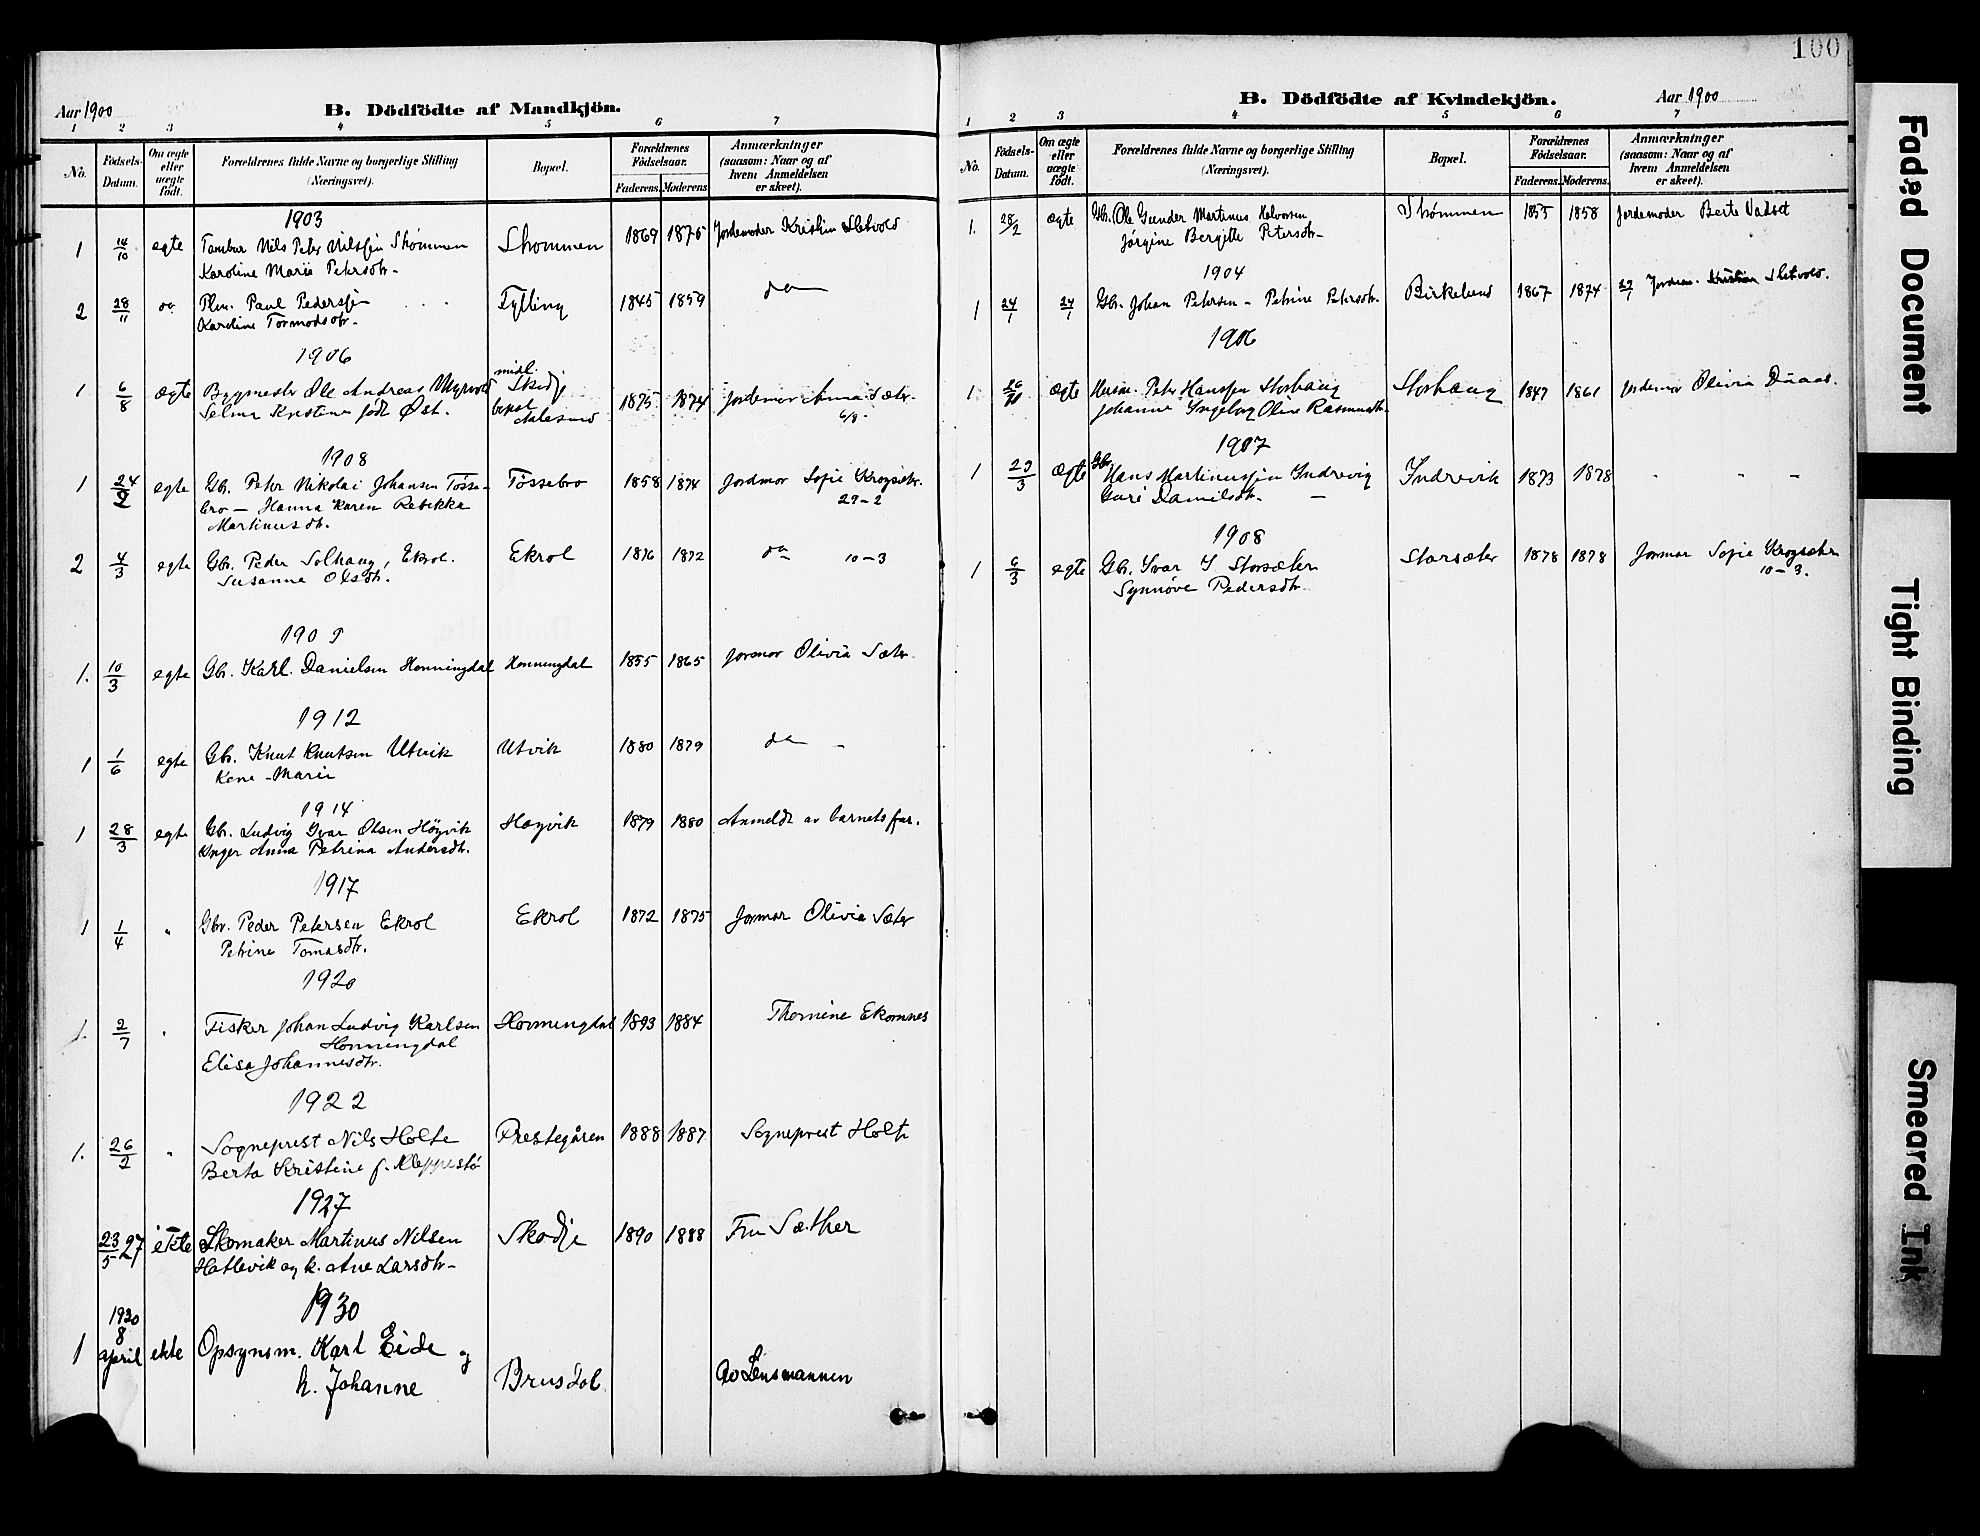 100
Aar 1900 B. Dödfödte af Mandkjön.
1 2 3 4 5 6 7
No. Födsels-Datum. Om ægte eller uægte födt. Forældrenes fulde Navne og borgerlige Stilling (Næringsvei). Bopæl. Forældrenes Födselsaar. Faderens. Moderens. Anmærkninger (saasom: Naar og af hvem Anmeldelsen er skeet).
1903
1 14/10 egte Tambur Nils Petr Nilssen Skommen Skommen 1869 1875 Jordemoder Kristin Sletvold
Karoline Marie Petersdtr.
2 28/11 do Plm. Paul Pederssen Fylling 1845 1859 do
Karoline Tormodsdtr.
1906
1 6/8 ægte Bygmester Ole Andreas Myrvold midl. Skodje 1875 1874 Jordemor Anna Sæter
Selma Kristine født Øst. bopæl Aalesund 6/8
1908
1 24/2 egte Gbr. Petr Nikolai Johansen Tøsse- Tøssebro 1858 1874 Jordmor Sofie Krogsætr.
bro — Hanna Karen Rebekka 29-2
Martinusdtr.
2 4/3 egte Gbr. Peder Solhaug, Ekrol. Ekrol 1876 1872 do 10-3
Susanne Olsdtr.
1909
1. 10/3 egte Gbr. Karl Danielsen Honningdal Honningdal 1855 1865 Jormor Olivia Sæter
1912
1 1/6 egte Gbr. Knut Knutsen Utvik Utvik 1880 1879 do
Kone - Marie
1914
1 28/3 egte Gbr. Ludvig Ivar Olsen Høgvik Høgvik 1879 1880 Anmeldt av barnets far.
Inger Anna Petrina Andersdtr.
1917
1 1/4 " Gbr. Peder Petersen Ekrol Ekrol 1872 1875 Jormor Olivia Sæter
Petrine Tomasdtr.
1920
1. 2/7 " Fisker Johan Ludvig Karlsen Honningdal 1893 1884 Thomine Ekornnes
Honningdal
Elisa Johannesdtr.
1922
1. 26/2 " Sogneprest Nils Holte Prestegåren 1888 1887 Sogneprest Holte
Berta Kristine f. Kleppestø
1927
23/5 27 ekte Skomaker Martinus Nilsen Skodje 1890 1888 Fru Sæther
Hatlevik og k. Ane Larsdtr.
1930
1 1930 8 april ekte Opsynsm. Karl Eide og
h. Johanne Brusdal Av Lensmannen
B. Dödfödte af Kvindekjön. Aar 1900
1 2 3 4 5 6 7
No. Födsels-Datum. Om ægte eller uægte födt. Forældrenes fulde Navne og borgerlige Stilling (Næringsvei). Bopæl. Forældrenes Födselsaar. Faderens. Moderens. Anmærkninger (saasom: Naar og af hvem Anmeldelsen er skeet).
1. 28/2 ægte Gbr. Ole Gunder Martinus Halvorsen Skommen 1855 1858 Jordemoder Berte Vadset
Jørgine Bergitte Petersdtr.
1904
1 24/1 24/1 Gbr. Johan Petersen - Petrine Petersdtr. Birkelund 1867 1874 27/1 Jordem. Kristian Sletvold.
1906
1 ægte Husm. Peter Hanssen Storhaug Storhaug 1847 1861 Jordemor Olivia
Johanne Ingeborg Oline Rasmusdtr.
1907
1 23/3 ægte Gbr. Hans Martinussen Indrevig Indrevik 1873 1878 " " "
Guri Danielsdtr. —
1908
1 6/3 egte Gbr. Ivar I Storsæter Storsæter 1878 1878 Jormor Sofie Krogsæter
Synnøve Pedersdtr. 10-3.
Faded Document
Tight Binding
Smeared Ink